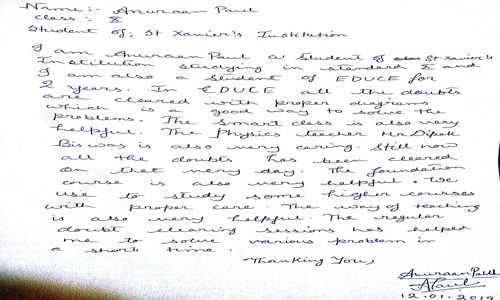 Name:- Anuraan Paul
Class: X
Student of: St Xavier's Institution
I am Anuraan Paul a student of St Xavier's
Institution studying in standard X and
I am also a student of EDUCE for
2 years. In EDUCE all the doubts
are cleared with proper diagrams
which is a good way to solve the
problems. The smart class is also very
helpful. The Physics teacher Mr. Dipak
Biswas is also very caring. Still now
all the doubts has been cleared
on that very day. The foundation
course is also very helpful. We
use to study some higher courses
with proper care. The way of teaching
is also very helpful. The regular
doubt clearing sessions has helped
me to solve various problem in
a short time.
Thanking You,
Anuraan Paul
APaul
12.01.2019